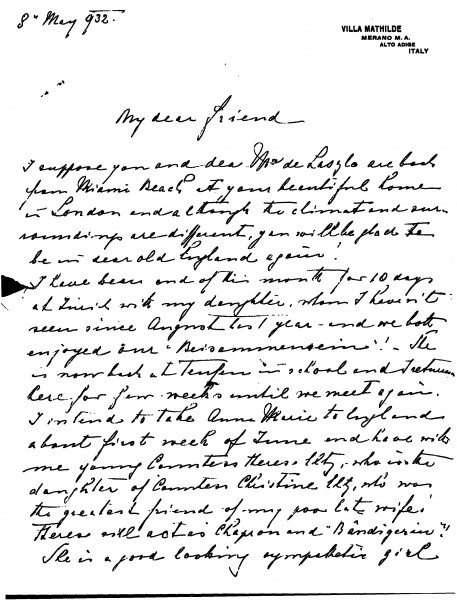 8th May 932.
VILLA MATHILDE
MERANO M. A.
ALTO ADIGE
ITALY
My dear friend —
I suppose you and dear Mrs de Laszlo are back
from Miami Beach at your beautiful home
in London and although the climat and sur-
roundings are different, you will be glad to
be in dear old England again!
I have been end of this month for 10 days
at Zürich with my daughter, whom I haven't
seen since August last year - and we both
enjoyed our "Beisammensein"! - She
is now back at Teufen in school and I return
here for few weeks until we meet again.
I intend to take Anne Marie to England
about first week of June and have with
me young Countess Therese, who is the
daughter of Countess Christine, who was
the greatest friend of my poor late wife!
Therese will act as Chapron and "Bändigerin"!
She is a good looking sympathetic girl